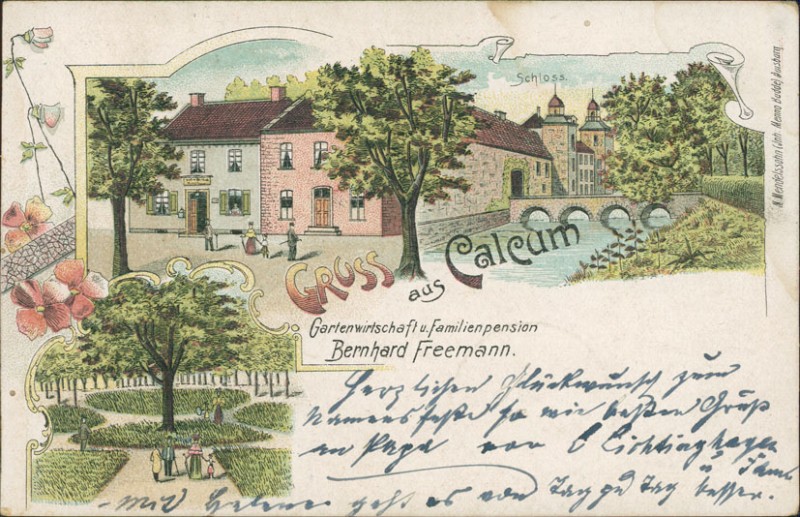 Schloss.
GRUSS aus Calcum
Gartenwirtschaft u. Familienpension
Bernhard Freemann.
Herzlichen Glückwunsch zum
Namensfeste so wie besten Gruß
an Papa von
u
Mit Helene geht es von Tag zu Tag besser.